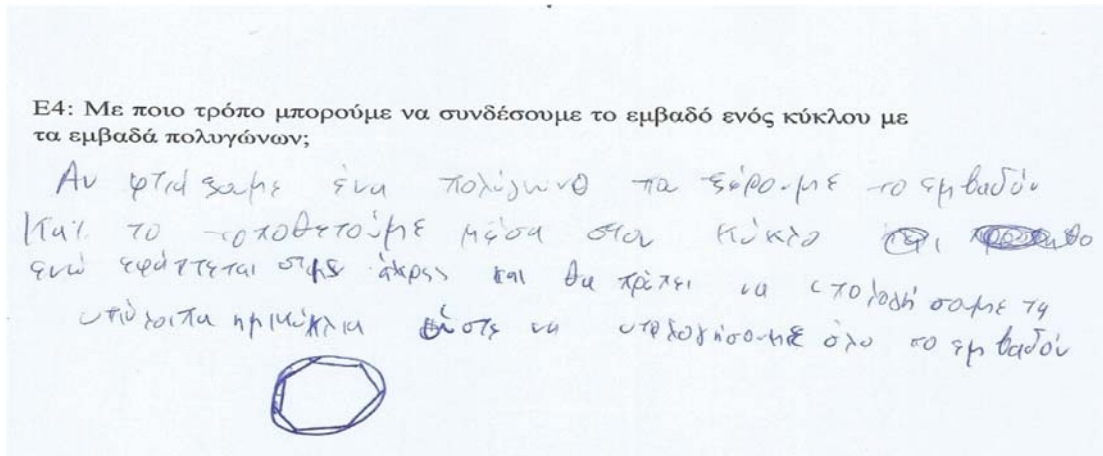 Ε4: Με ποιο τρόπο μπορούμε να συνδέσουμε το εμβαδό ενός κύκλου με
τα εμβαδά πολυγώνων;
Αν φτιάξουμε ένα πολύγωνο πα ξέρουμε το εμβαδόν
και το τοποθετούμε μέσα στον κύκλο
ενώ εφάπτεται στις άκρες και θα πρέπει να υπολογήσουμε τα
υπόλοιπα ημικύκλια ώστε να υπολογήσουμε όλο το εμβαδόν